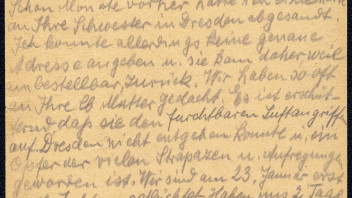 Schon Monate vorher hatte
an Ihre Schwester in Dresden abgesandt.
Ich konnte allerdings keine genaue
Adresse angeben u. sie kam daher weil
unbestellbar, zurück. Wir haben so oft
an Ihre lb Mutter gedacht. Es ist erschüt-
ternd daß sie den furchtbaren Luftangriffen
auf Dresden nicht entgehen konnte u. ein
Opfer der vielen Strapazen u. Aufregungen
geworden ist. Wir sind am 23. Januar erst
haben uns 2 Tage